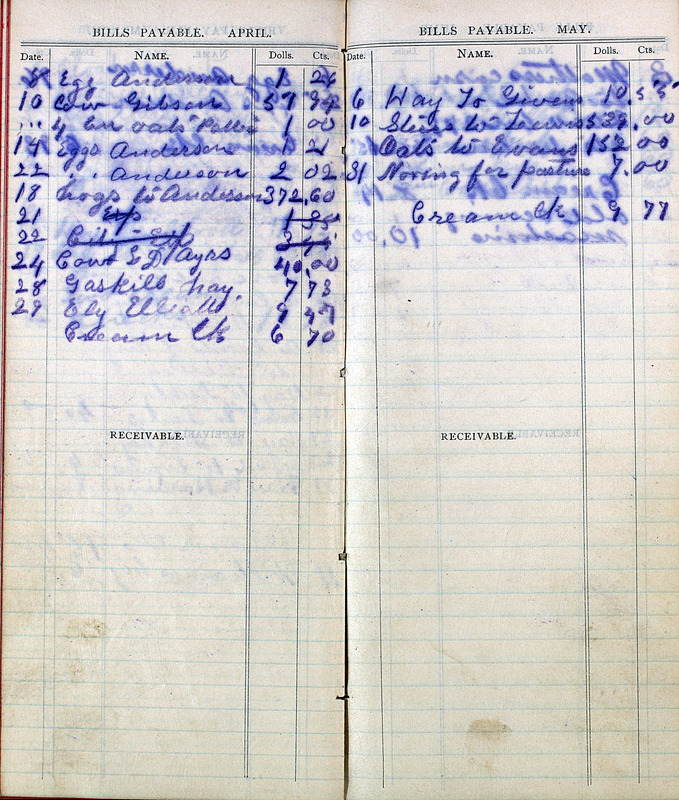 BILLS PAYABLE. APRIL.
Date. NAME. Dolls. Cts.
8 Egg Anderson 1 26
10 Cow Gibson 57 94
" 4 bu oats 1 00
14 Eggs Anderson 1 21
22 " " Anderson 2 02
18 hogs to Anderson 372.60
21
22
24 Cow Ayrs 40.00
28 Gaskills hay 7 73
29 Elliott 9 47
Cream Ck 6 70
RECEIVABLE.
BILLS PAYABLE. MAY.
Date. NAME. Dolls. Cts.
6 Hay To Givens 10.55
10 to 529.00
Oats to Evans 152.00
31 for pasture 7.00
Cream Ck 9 77
RECEIVABLE.